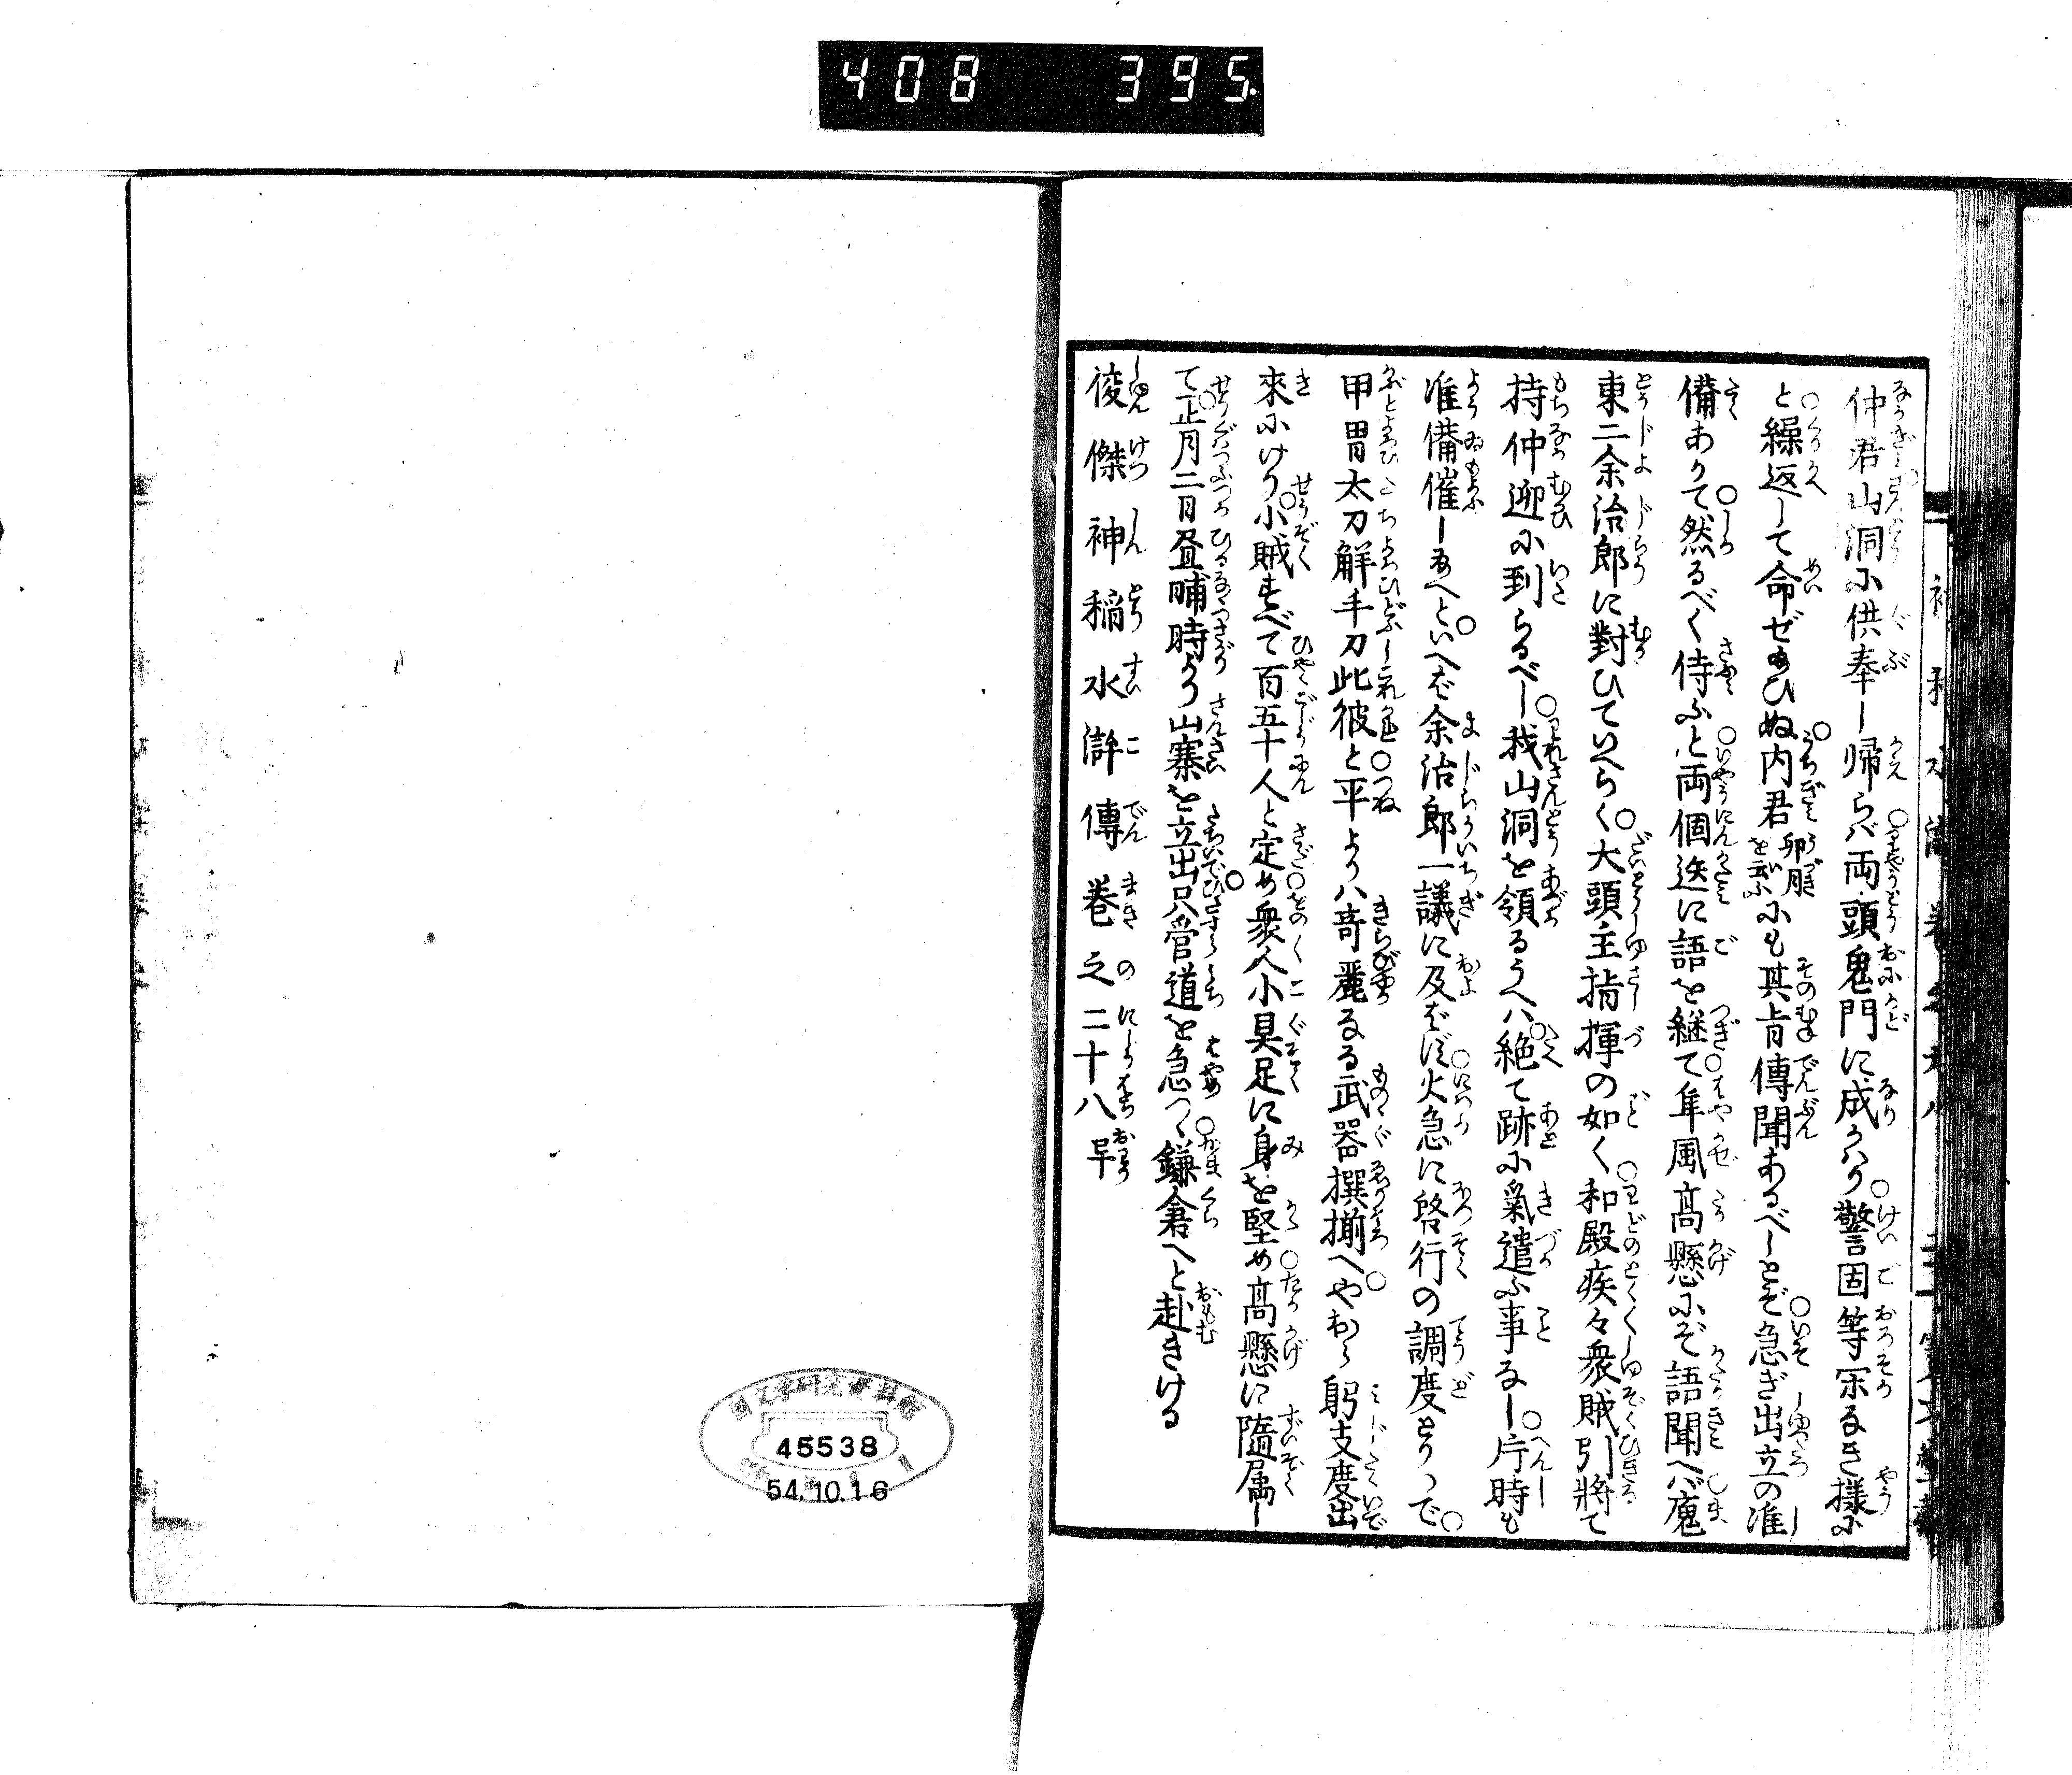 408 395.
仲君山洞に供奉し帰らバ両頭鬼門に成かハり警固等宗るき様に
と繰返して命ぜ給ひぬ内君卵月雁を云ふにも其旨傳聞あるべしとぞ急ぎ出立の准
備ありて然るべく侍ふと両個迭に語を継て隼風高懸にぞ語聞へバ魔
東二余治郎に對ひていへらく大頭主指揮の如く和殿疾々衆賊引将て
持仲迎に到らるべし我山洞を領るうへハ絶て跡に氣遣ふ事なし片時も
准備催し給へといへば余治郎一議に及ばず火急に啓行の調度とりつで
甲冑太刀觧手刀此彼と平よりハ奇麗なる武器撰揃へやおら躬支度出
來にけり小賊すべて百五十人と定め衆人小具足に身を堅め高懸に隨属し
て正月二日昼晡時より山寨を立出只管道を急つゝ鎌倉へと赴きける
俊傑神稲水滸傳巻之二十八早
国文学研究資料館
45538
54.10.16